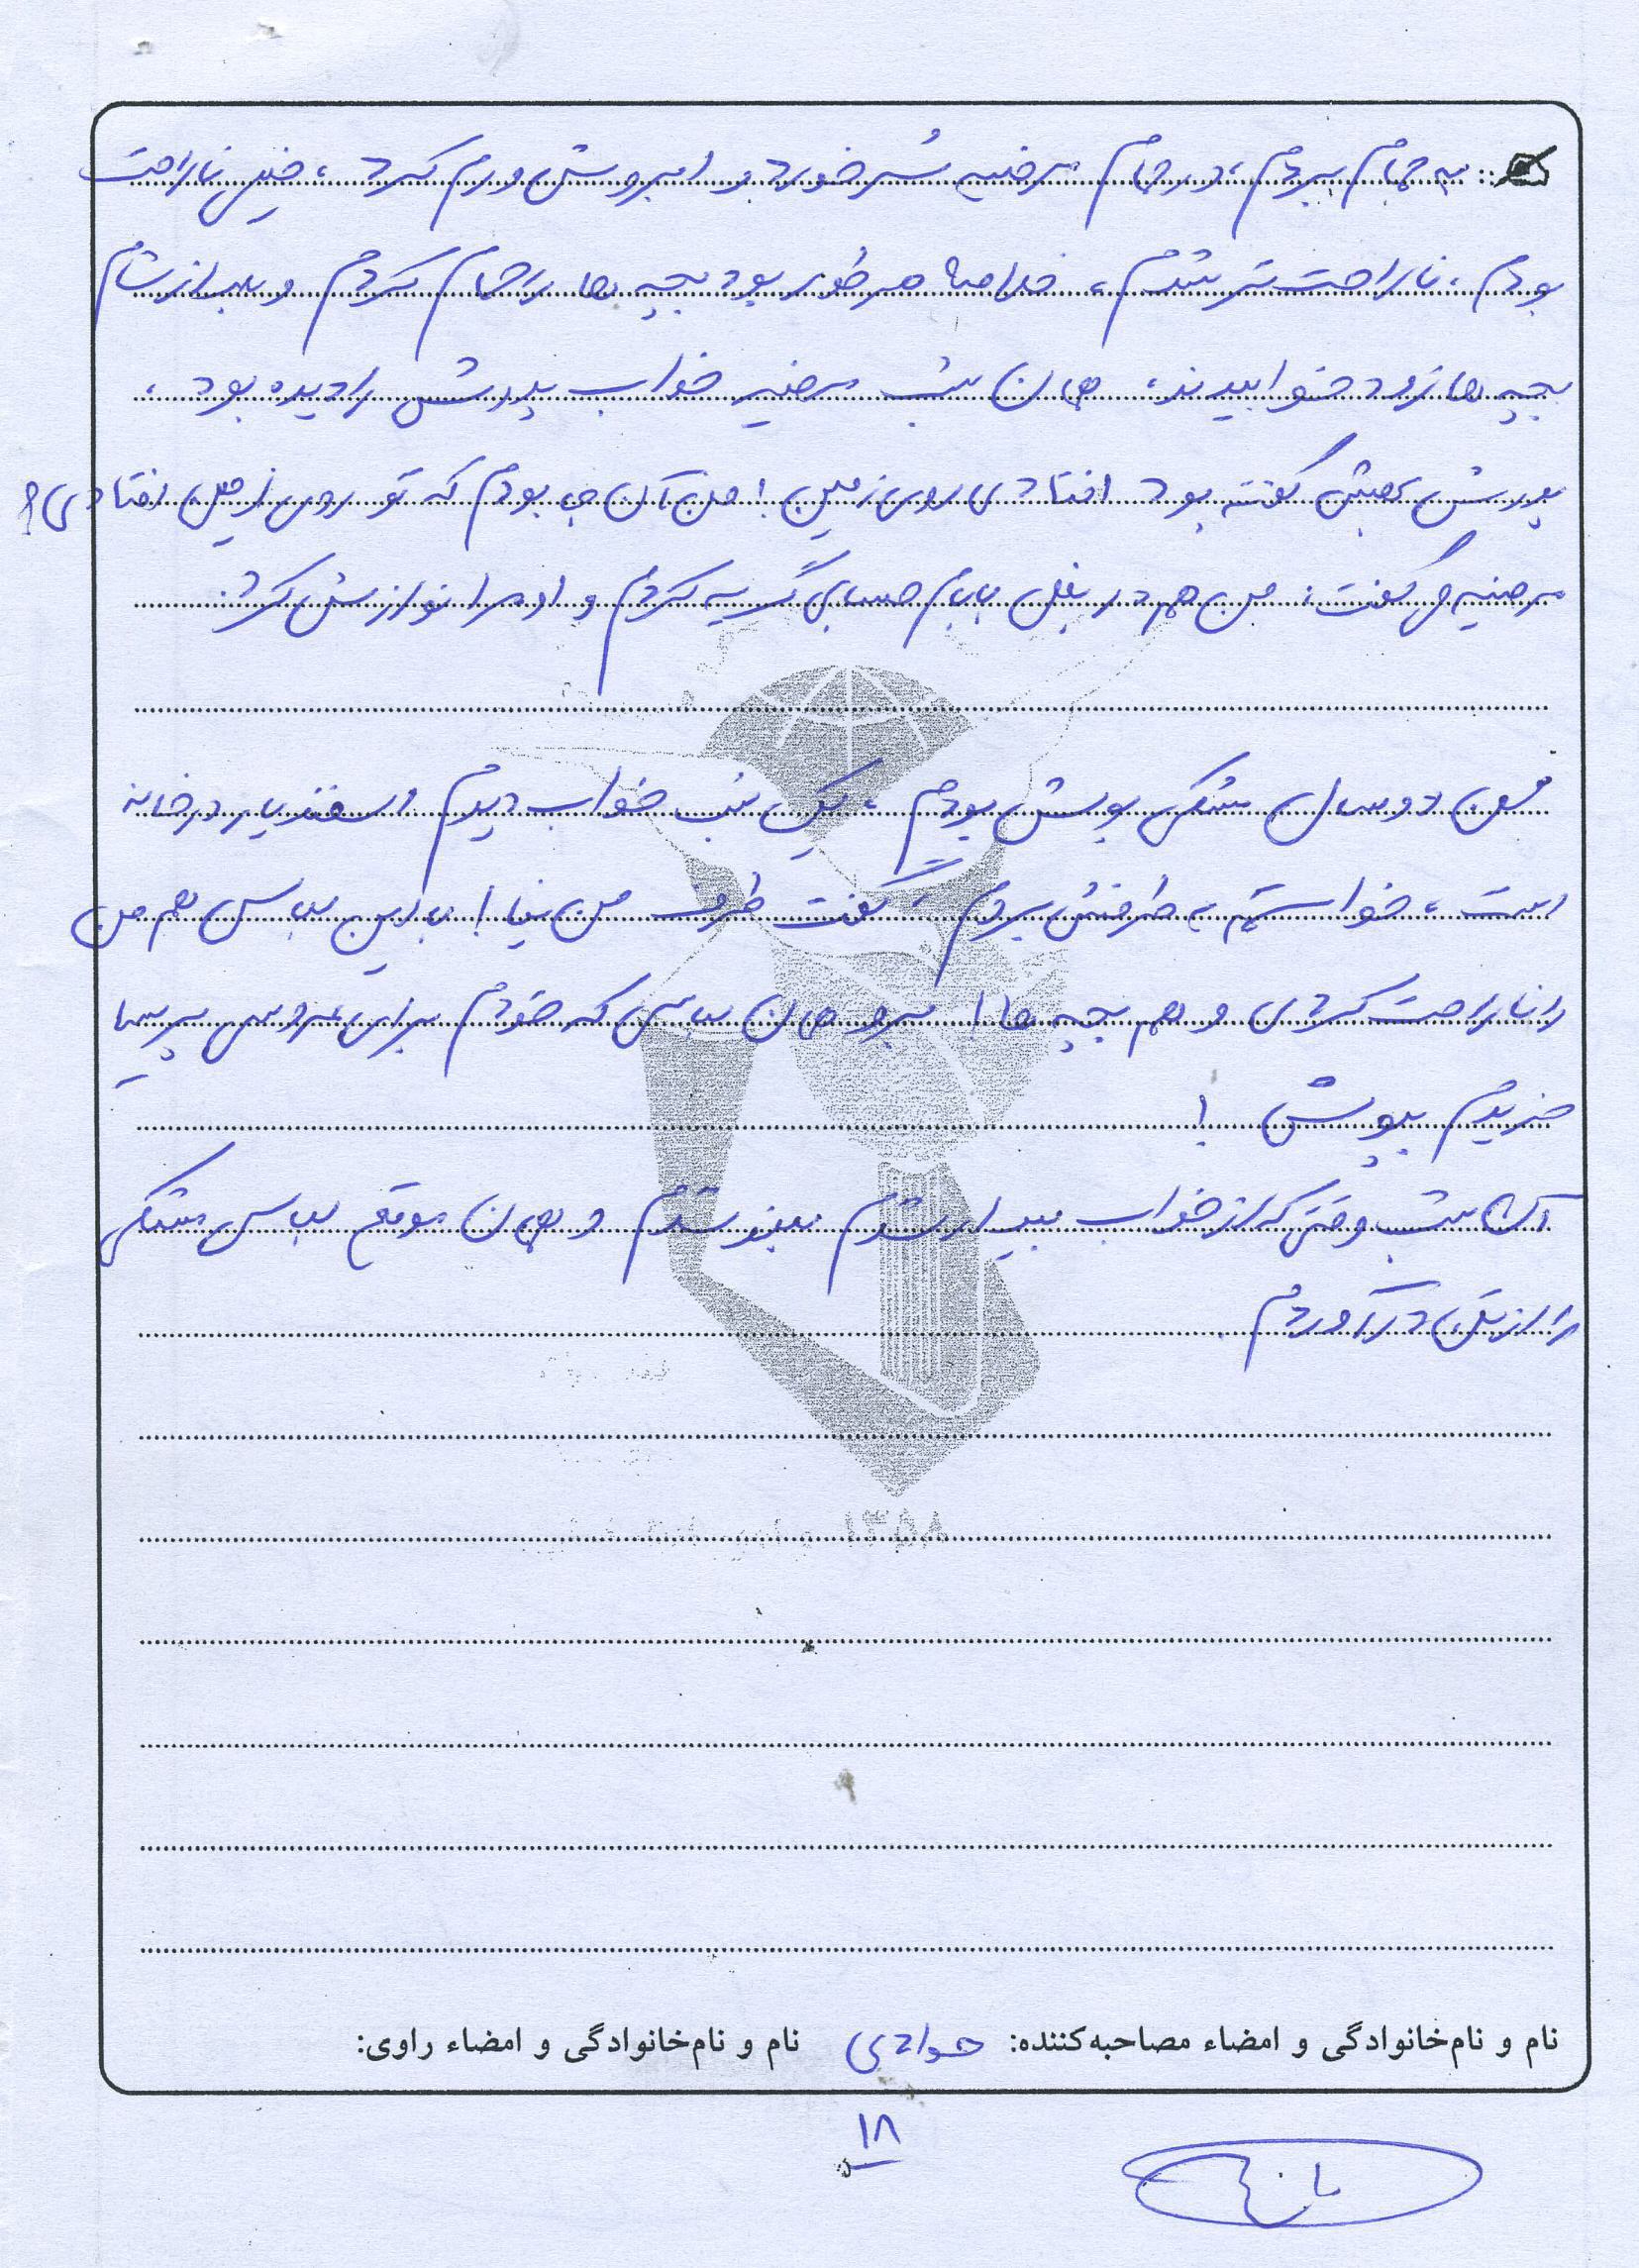 به حمام بردم، در حمام مرضیه سُر خورد و ابروش ورم کرد، خیلی ناراحت
بودم، ناراحت‌تر شدم، خلاصه هر طور بود بچه ها را حمام کردم و بعد از شام
بچه ها زود خوابیدند، همان شب مرضیه خواب پدرش را دیده بود،
پدرش بهش گفته بود افتادی روی زمین! من آن جا بودم که تو روی زمین افتادی؟
مرضیه می گفت: من هم در بغل بابام حسابی گریه کردم و او مرا نوازش کرد.
من دو سال مشکی پوش بودم، یک شب خواب دیدم اسفندیار در خانه
است، خواستم به طرفش بروم، گفت طرف من نیا! با این لباس هم من
را ناراحت کردی و هم بچه ها! برو همان لباسی که خودم برای عروسی پریسا
خریدم بپوش!
آن شب وقتی که از خواب بیدار شدم بلند شدم و همان موقع لباس مشکی
را از تنم درآوردم.
نام و نام‌خانوادگی و امضاء مصاحبه‌کننده: جوادی نام و نام‌خانوادگی و امضاء راوی:
۱۸
۱۳۵۸